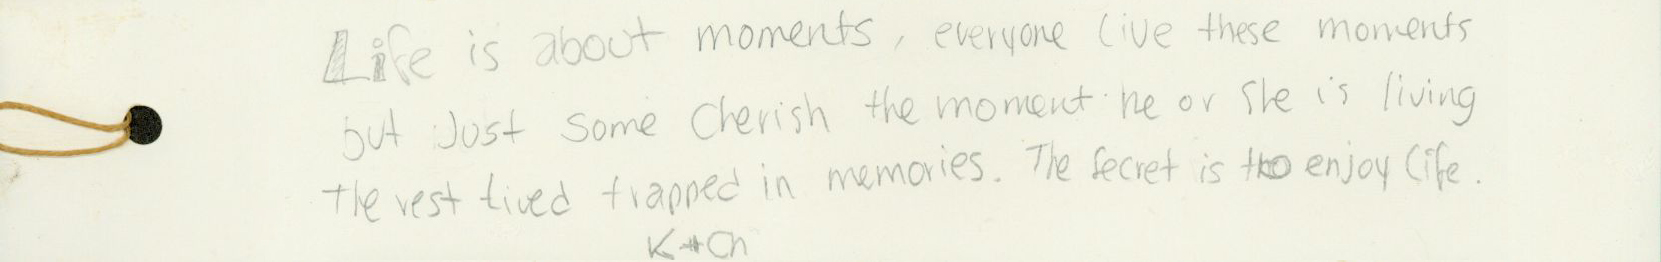 Life is about moments, everyone live these moments
but Just Some Cherish the moment he or She is living
The rest lived trapped in memories. The Secret is to enjoy life.
K*Ch